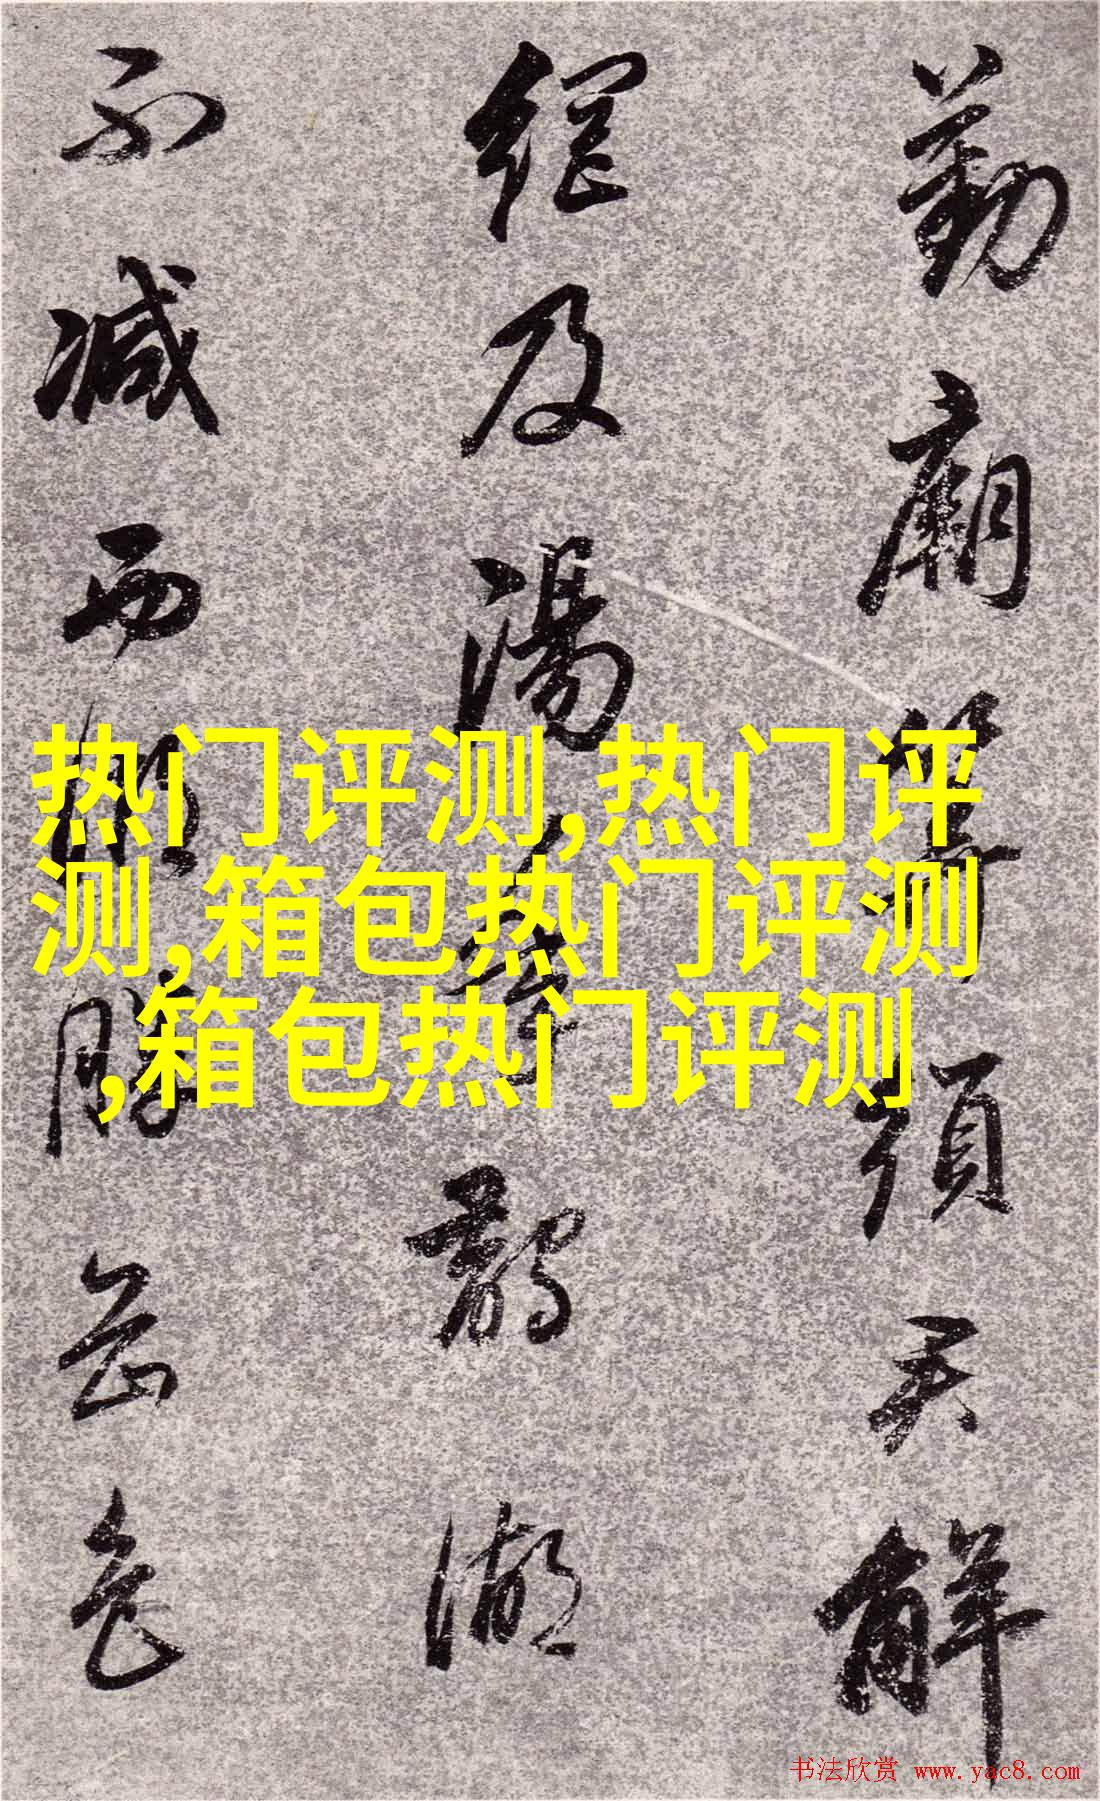 勤廟筭須解
及湯年鵲湖
不減西湖勝岳色
热门评测,热门评
测,箱包热门评测
,箱包热门评测
书法欣赏 www.yac8.com